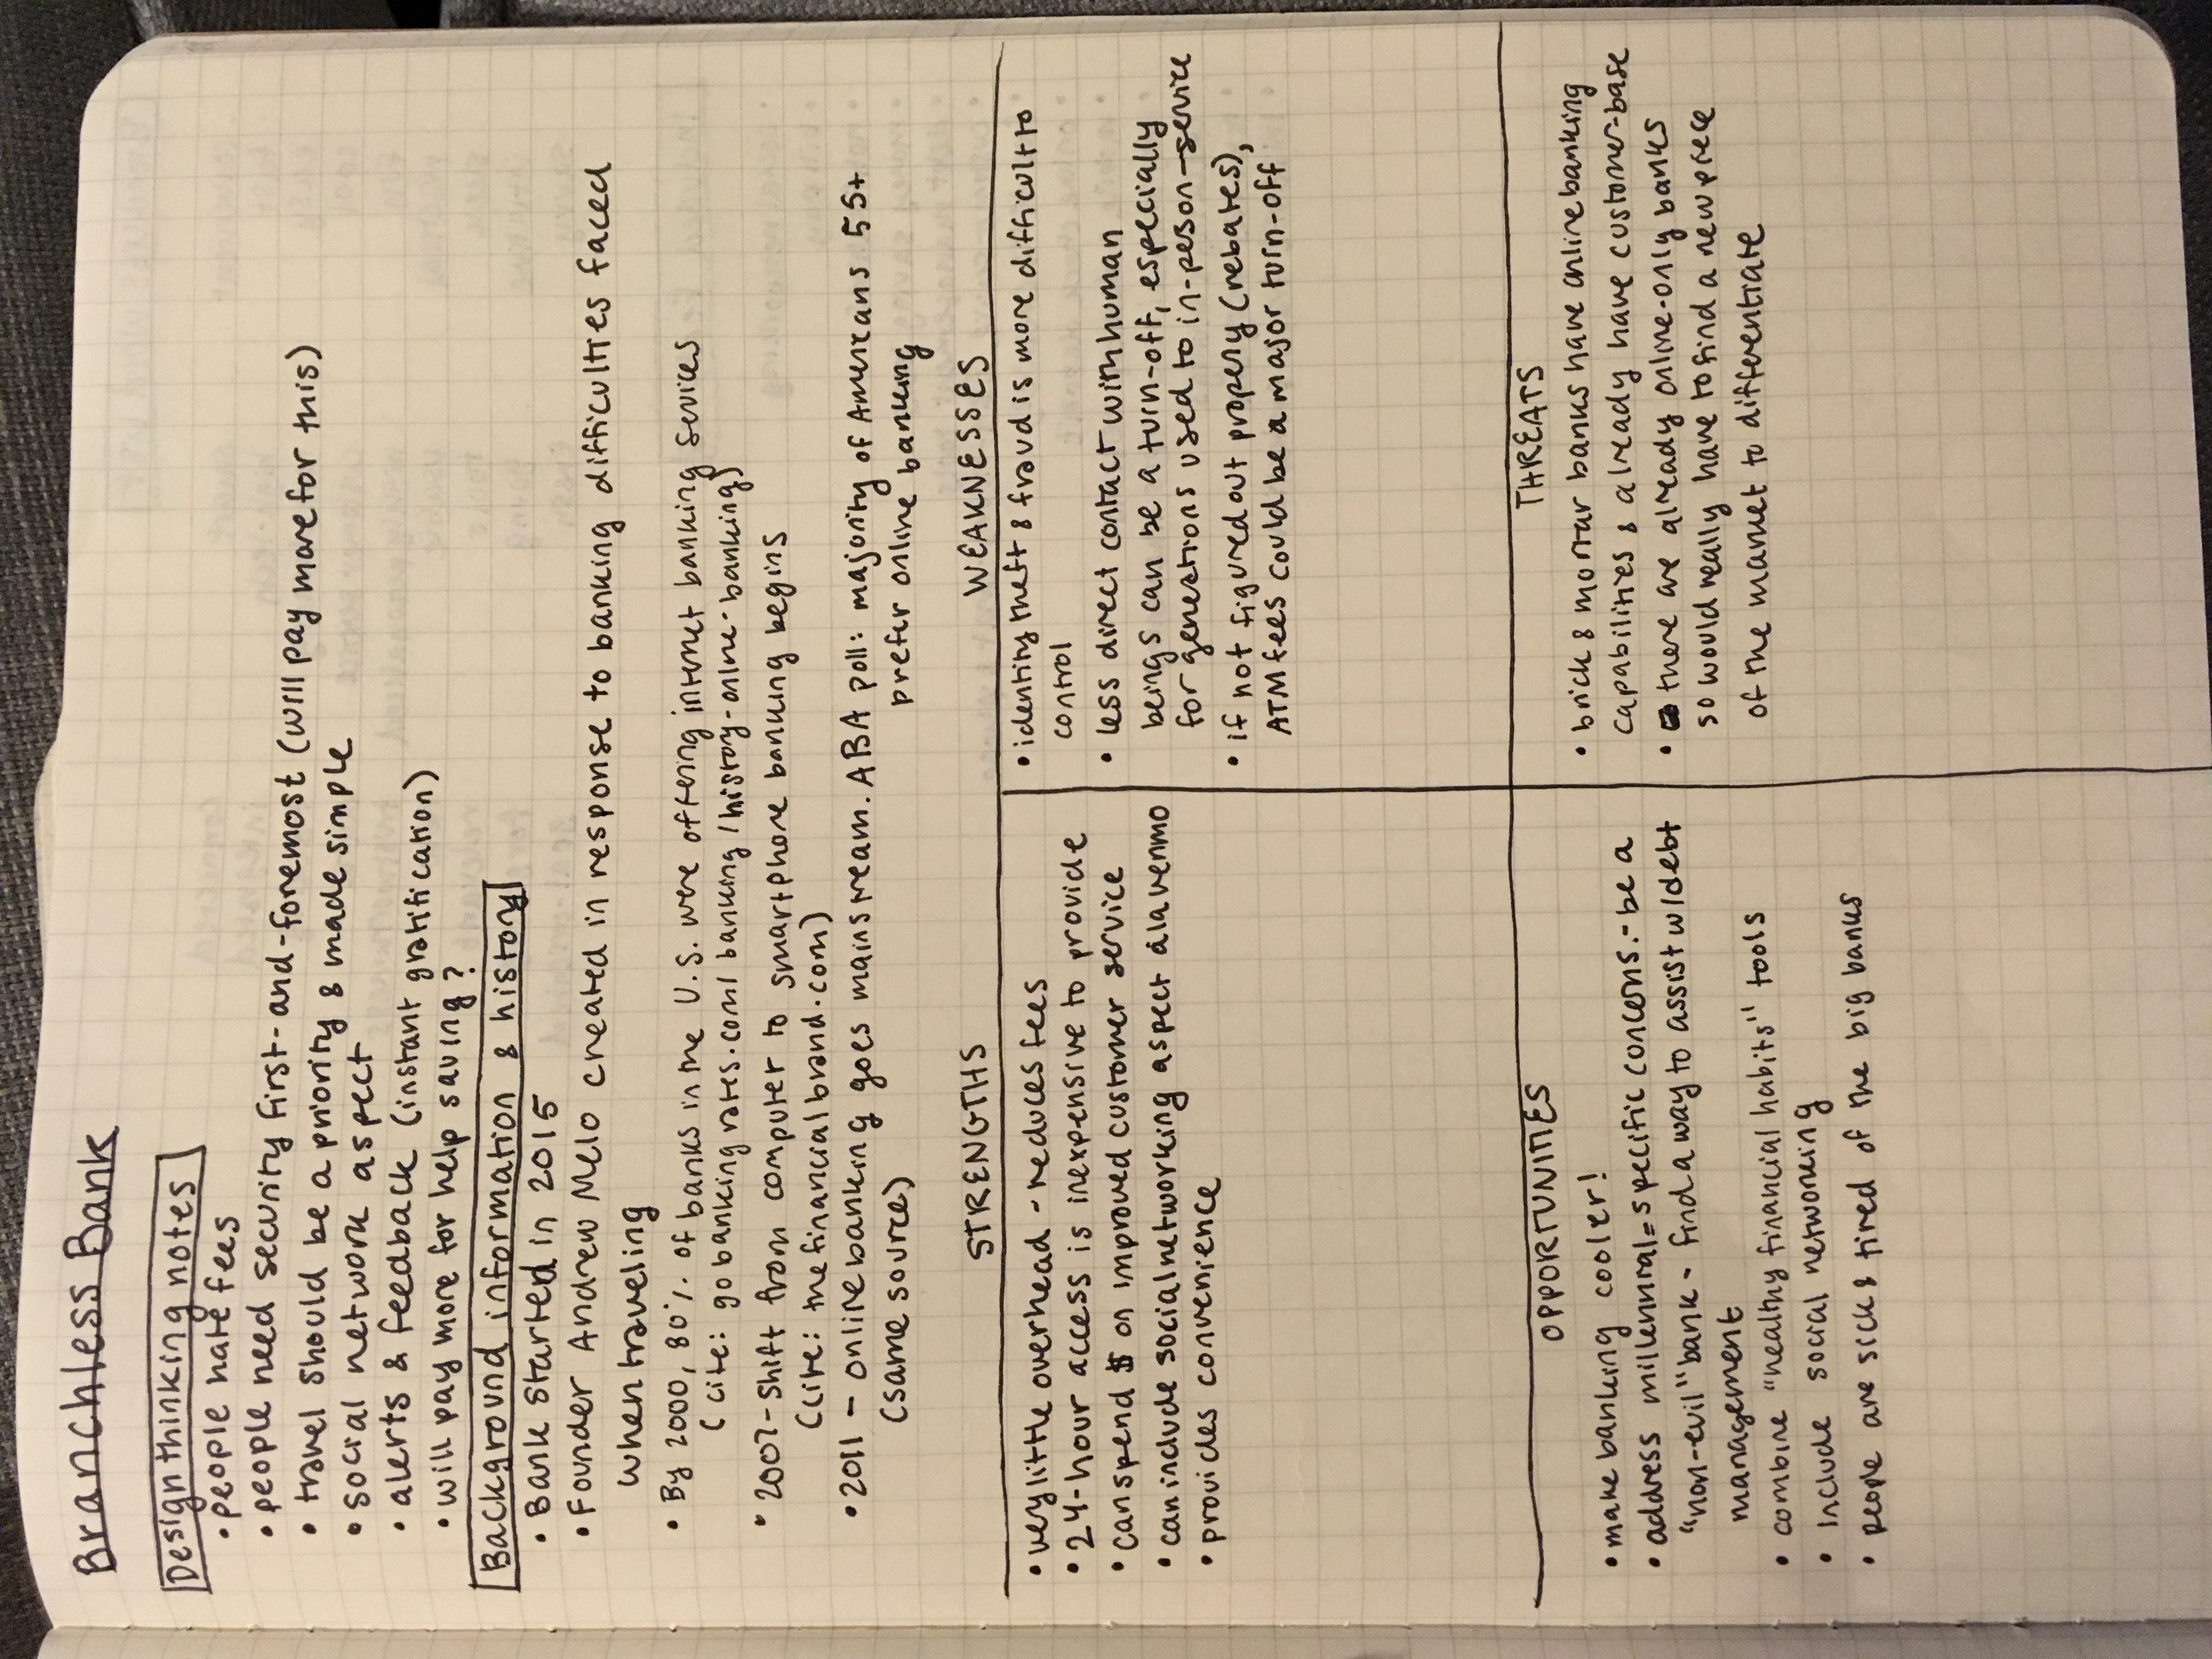 Branchless Bank
Design thinking notes
• people hate fees
• people need security first-and-foremost (will pay more for this)
• travel should be a priority & made simple
• social network aspect
• alerts & feedback (instant gratification)
• will pay more for help saving?
Background information & history
• Bank started in 2015
• Founder Andrew Melo created in response to banking difficulties faced
when traveling
• By 2000, 80%. of banks in the U.S. were offering internet banking sevices
(cite: gobankingrates.com/banking/history-online-banking)
• 2007-shift from computer to smartphone banking begins
(cite: thefinancialbrand.com)
• 2011 - online banking goes mainstream. ABA poll: majority of Americans 55+
(same source) prefer online banking
STRENGTHS
• very little overhead - reduces fees
• 24-hour access is inexpensive to provide
• can spend $ on improved customer service
• can include social networking aspect á la venmo
• provides convenience
WEAKNESSES
• identity theft & fraud is more difficult to
control
• less direct contact with human
beings can be a turn-off, especially
for generations used to in-person-service
• if not figured out propery (rebates),
ATM fees could be a major turn-off
OPPORTUNITIES
• make banking cooler!
• address millennial=specific concerns.- be a
"non-evil" bank - find a way to assist w/debt
management
• combine "healthy financial habits" tools
• Include social networking
• people are sick & tired of the big banks
THREATS
• brick & mortar banks have online banking
capabilities & already have customer-base
• there are already online-only banks
so would really have to find a new piece
of the market to differentiate